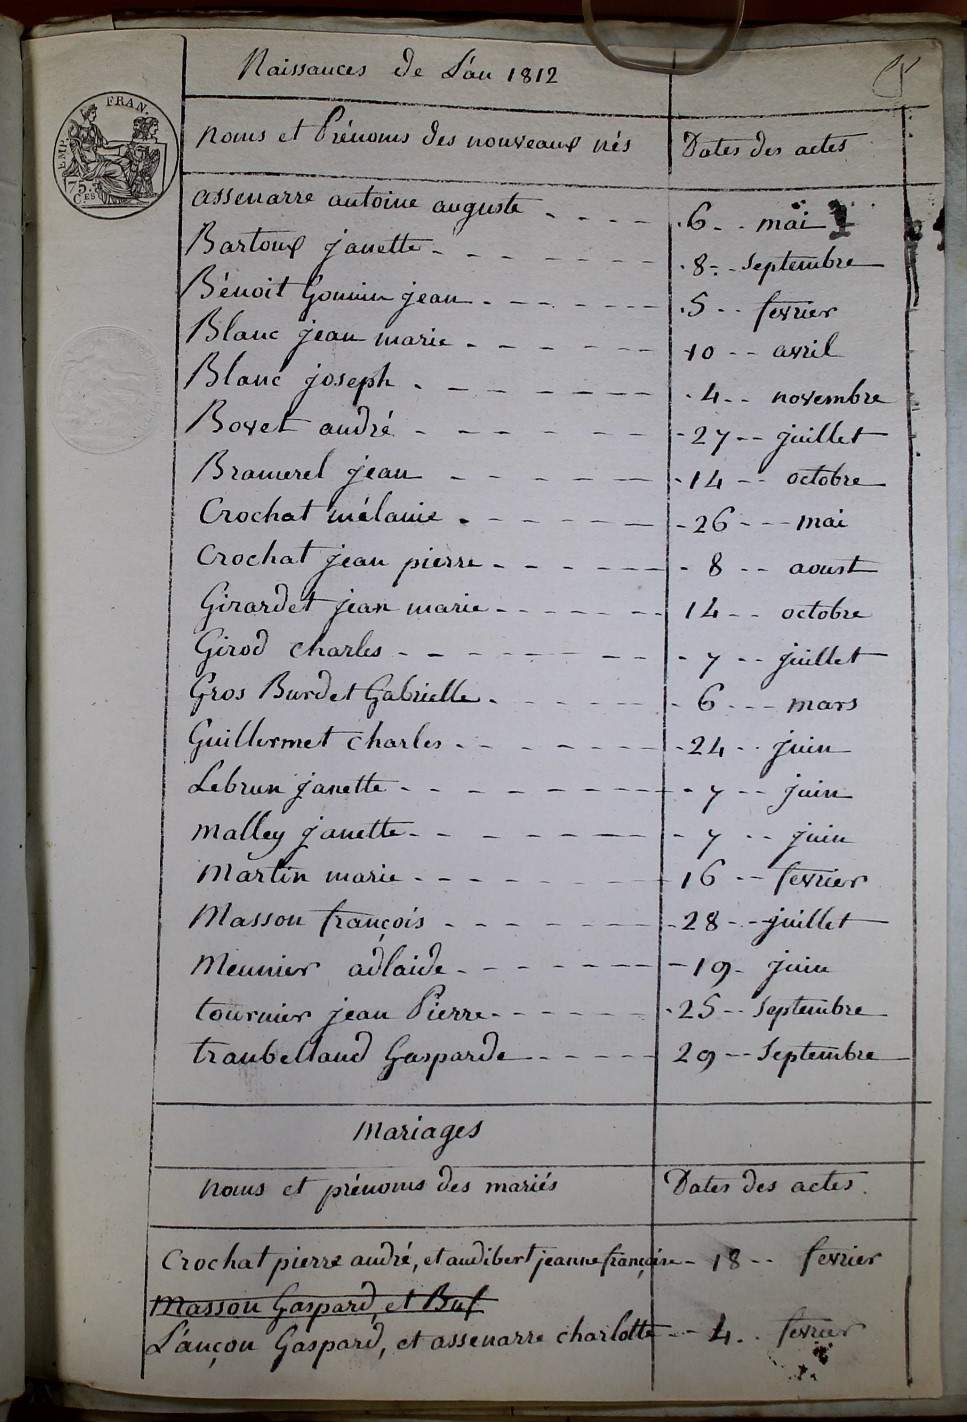 Naissances de L'an 1812
EMP. FRAN.
75. CES
noms et Prénoms des nouveaux nés Dates des actes
assenarre antoine auguste 6 mai
Bartoux janette 8 Septembre
Bénoit Gonnin jean 5 fevrier
Blanc jean marie 10 avril
Blanc joseph 4 novembre
Bovet andré 27 juillet
Bramerel jean 14 octobre
Crochat mélanie 26 mai
Crochat jean pierre 8 aoust
Girardet jean marie 14 octobre
Girod charles 7 juillet
Gros Burdet Gabrielle 6 mars
Guillermet charles 24 juin
Lebrun janette 7 juin
malley janette 7 juin
Martin marie 16 fevrier
Masson françois 28 juillet
Meunier adlaide 19 juin
tournier jean Pierre 25 Septembre
trabelland Gasparde 29 Septembre
Mariages
noms et prénoms des mariés Dates des actes
Crochat pierre andré, et audibert jeanne françoise 18 fevrier
Masson Gaspard, et Buf
L'ançon Gaspard, et assenarre charlotte 4 fevrier